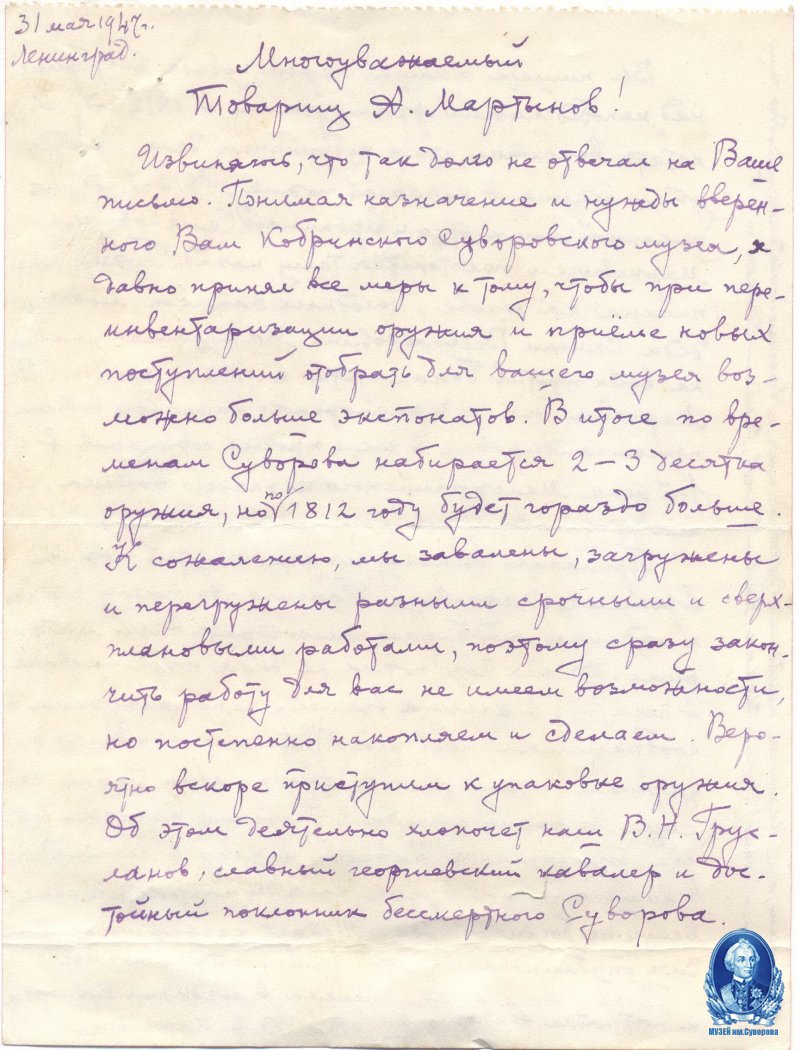 31 мая 1947 г.
Ленинград.
Многоуважаемый
Товарищ А. Мартынов!
Извиняюсь, что так долго не отвечал на Ваше
письмо. Понимая назначение и нужды вверен-
ного Вам Кобринского Суворовского музея, я
давно принял все меры к тому, чтобы при пере-
инвентаризации оружия и приёме новых
поступлений отобрать для вашего музея воз-
можно больше экспонатов. В итоге по вре-
менам Суворова набирается 2–3 десятка
оружия, но по 1812 году будет гораздо больше.
К сожалению, мы завалены, загружены
и перегружены разными срочными и сверх-
плановыми работами, поэтому сразу закон-
чить работу для вас не имеем возможности,
но постепенно накопляем и сделаем. Веро-
ятно вскоре приступим к упаковке оружия.
Об этом деятельно хлопочет наш В.Н. Грус-
ланов, славный георгиевский кавалер и дос-
тойный поклонник бессмертного Суворова.
МУЗЕЙ им.Суворова